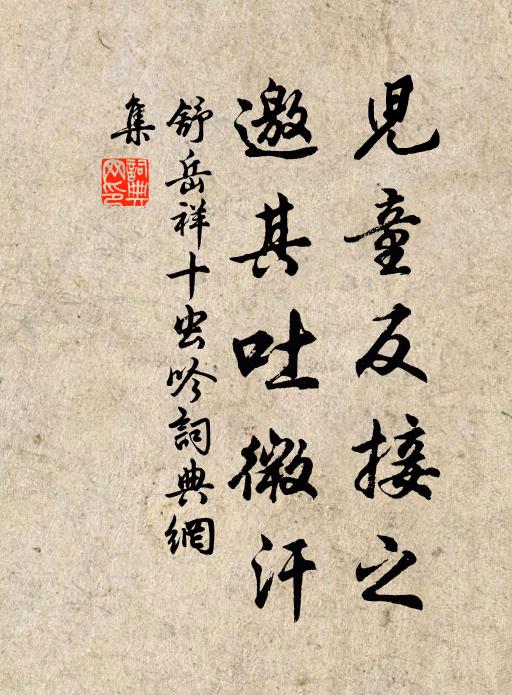 兒童反接之
邀其吐微汗
舒岳祥十虫吟詞典網
集
詞典
网印